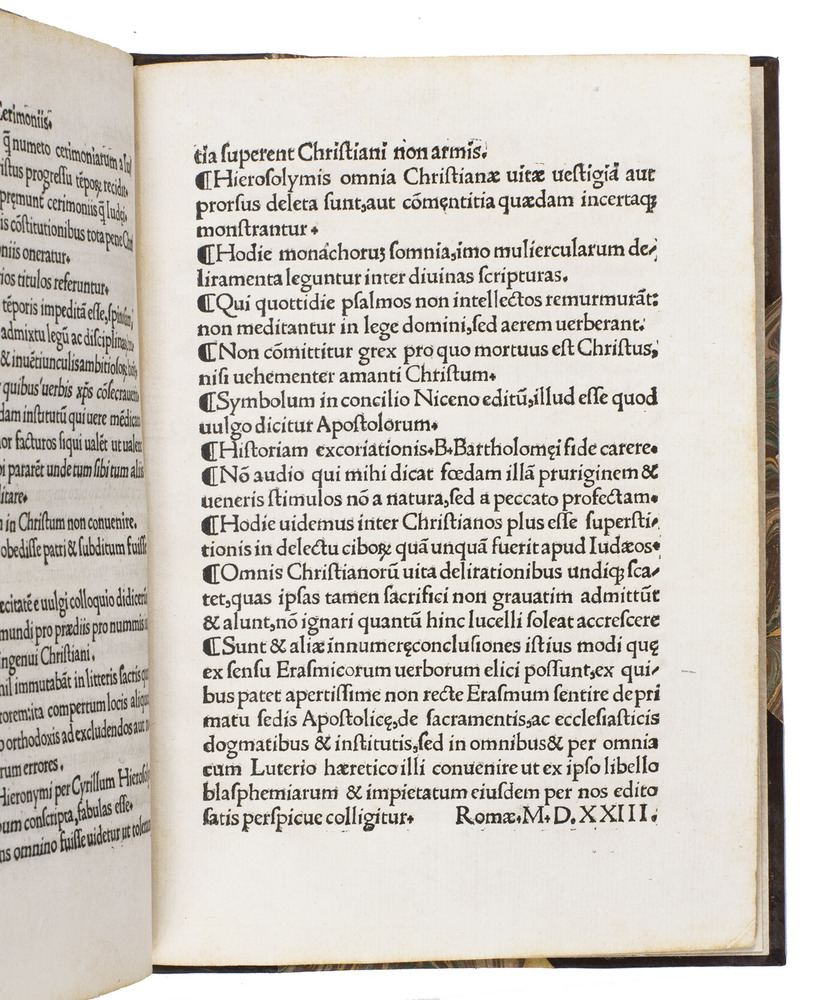 Cerimoniis.
q̃ numeto cerimoniarum a Iu/
istus progressu tẽpoꝝ recidit.
premunt̃ cerimoniis q̃ Iudei.
is cõstitutionibus tota pene Chri
oniis oneratur.
rios titulos referuntur.
tẽporis impeditã esse, spinulam,
admixtu legũ ac disciplinaꝝ
& inuẽtiunculis ambitiosoꝝ
quibus uerbis xp̃s cõsecrauerit
dam institutũ qui uere mẽdicam
or facturos siqui ualẽt ut ualent
pi pararẽt unde tum sibi tum aliis
litare.
in Christum non conuenire.
obedisse patri & subditum fuisse
ecitatẽ e uulgi colloquio didicerũt
mundi pro prædiis pro nummis
ingenui Christiani.
nil immutabãt in litteris sacris
torem: ita compertum locis
orthodoxis ad excludendos aut
rum errores.
Hieronymi per Cyrillum
bum conscripta, fabulas esse.
omnino fuisse uidetur ut
tia superent Christiani non armis.
¶Hierosolymis omnia Christianæ uitæ uestigia aut
prorsus deleta sunt,aut cõmẽntitia quædam incertaqꝫ
monstrantur.
¶Hodie monachoruꝫ somnia,imo muliercularum de/
liramenta leguntur inter diuinas scripturas.
¶Qui quottidie psalmos non intellectos remurmurãt:
non meditantur in lege domini,sed aerem uerberant.
¶Non cõmittitur grex pro quo mortuus est Christus,
nisi uehementer amanti Christum.
¶Symbolum in concilio Niceno editũ,illud esse quod
uulgo dicitur Apostolorum.
¶Historiam excoriationis.B.Bartholomęi fide carere.
¶Nõ audio qui mihi dicat fœdam illã pruriginem &
ueneris stimulos nõ a natura,sed a peccato profectam.
¶Hodie uidemus inter Christianos plus esse supersti/
tionis in delectu ciboꝝ quã unquã fuerit apud Iudæos.
¶Omnis Christianorũ uita delirationibus undiqꝫ sca/
tet,quas ipsas tamen sacrifici non grauatim admittũt
& alunt,nõ ignari quantũ hinc lucelli soleat accrescere
¶Sunt & aliæ innumerę conclusiones istius modi quę
ex sensu Erasmicorum uerborum elici possunt,ex qui/
bus patet apertissime non recte Erasmum sentire de pri
matu sedis Apostolicę,de sacramentis,ac ecclesiasticis
dogmatibus & institutis,sed in omnibus & per omnia
cum Luterio hæretico illi conuenire ut ex ipso libello
blasphemiarum & impietatum eiusdem per nos edito
satis perspicue colligitur. Romæ.M.D.XXIII.